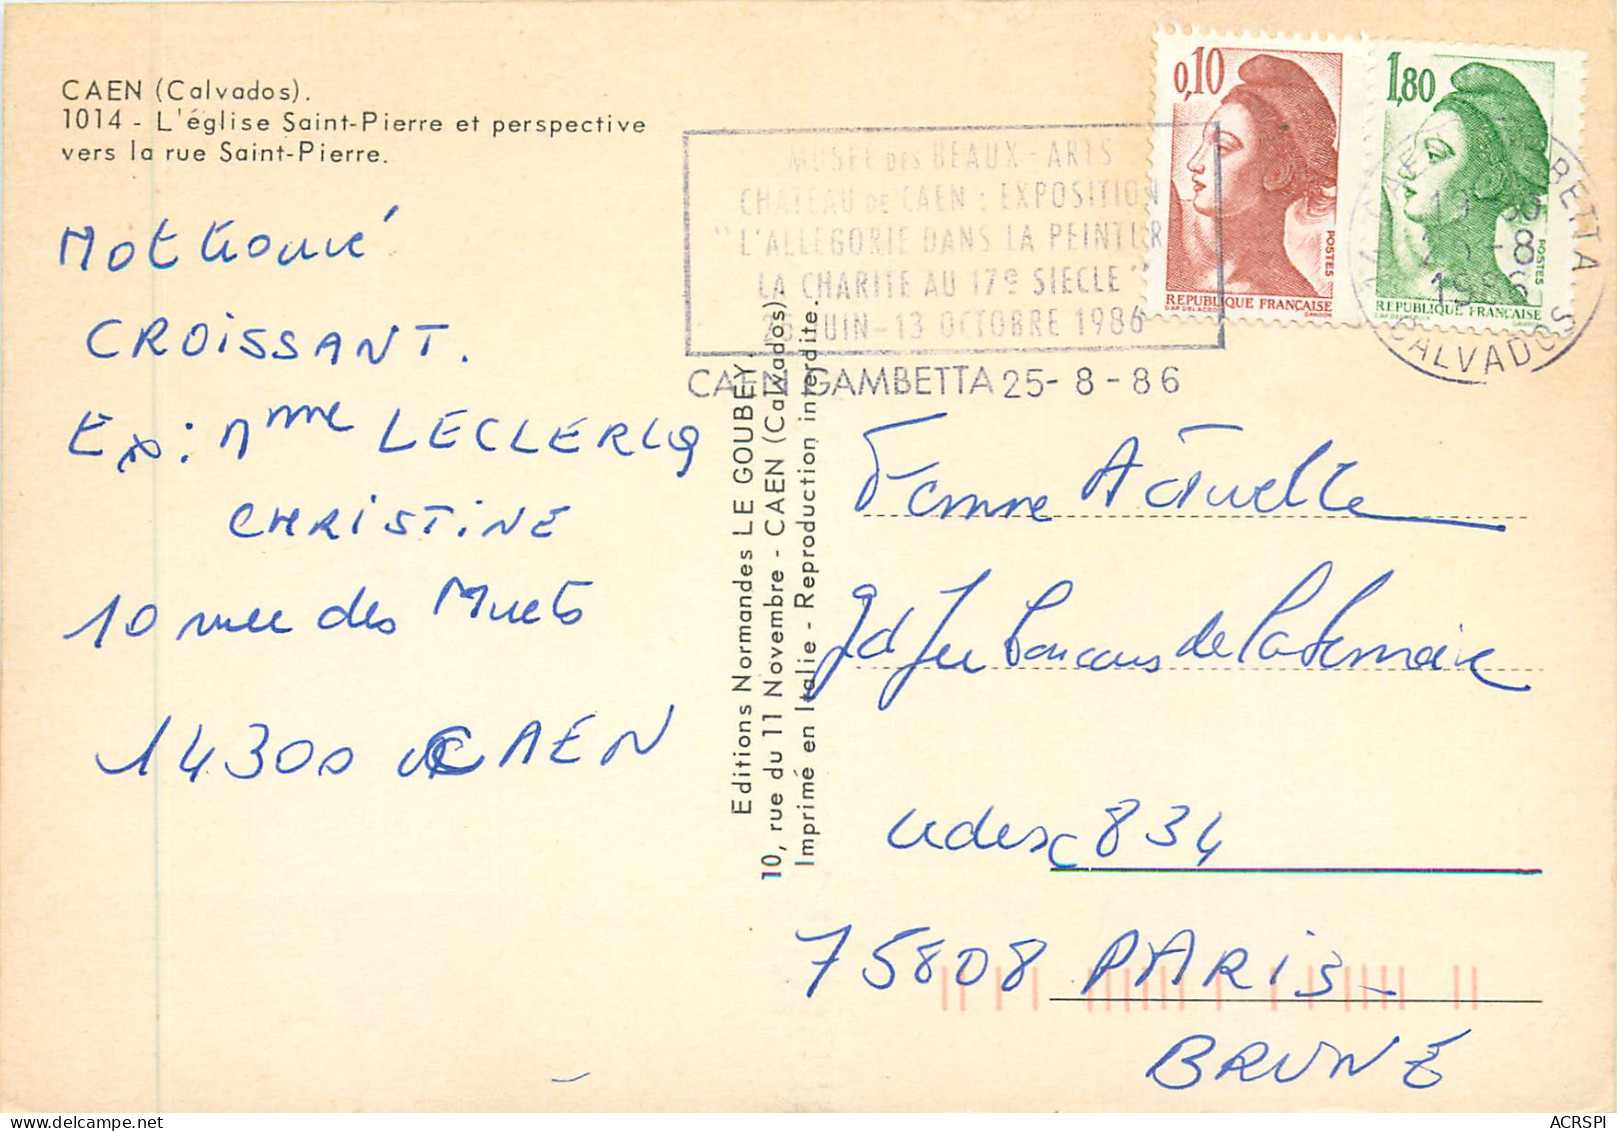 CAEN (Calvados).
1014 - L'église Saint-Pierre et perspective
vers la rue Saint-Pierre.
Mot trouvé
CROISSANT.
Ex: Mme LECLERCQ
CHRISTINE
10 rue des Muets
14300 CAEN
Editions Normandes LE GOUBEY.
10, rue du 11 Novembre - CAEN (Calvados)
Imprimé en Italie - Reproduction interdite.
MUSEE DES BEAUX-ARTS
CHATEAU DE CAEN : EXPOSITION
"L'ALLEGORIE DANS LA PEINTUR
LA CHARITE AU 17e SIECLE"
25 JUIN-13 OCTOBRE 1986
CAEN GAMBETTA 25-8-86
0,10
POSTES
REPUBLIQUE FRANÇAISE
1,80
POSTES
REPUBLIQUE FRANÇAISE
CALVADOS
1986
Femme Actuelle
gd Jeu Concours de la Semaine
cedex 834
75808 PARIS
BRUNE
ACRSPI